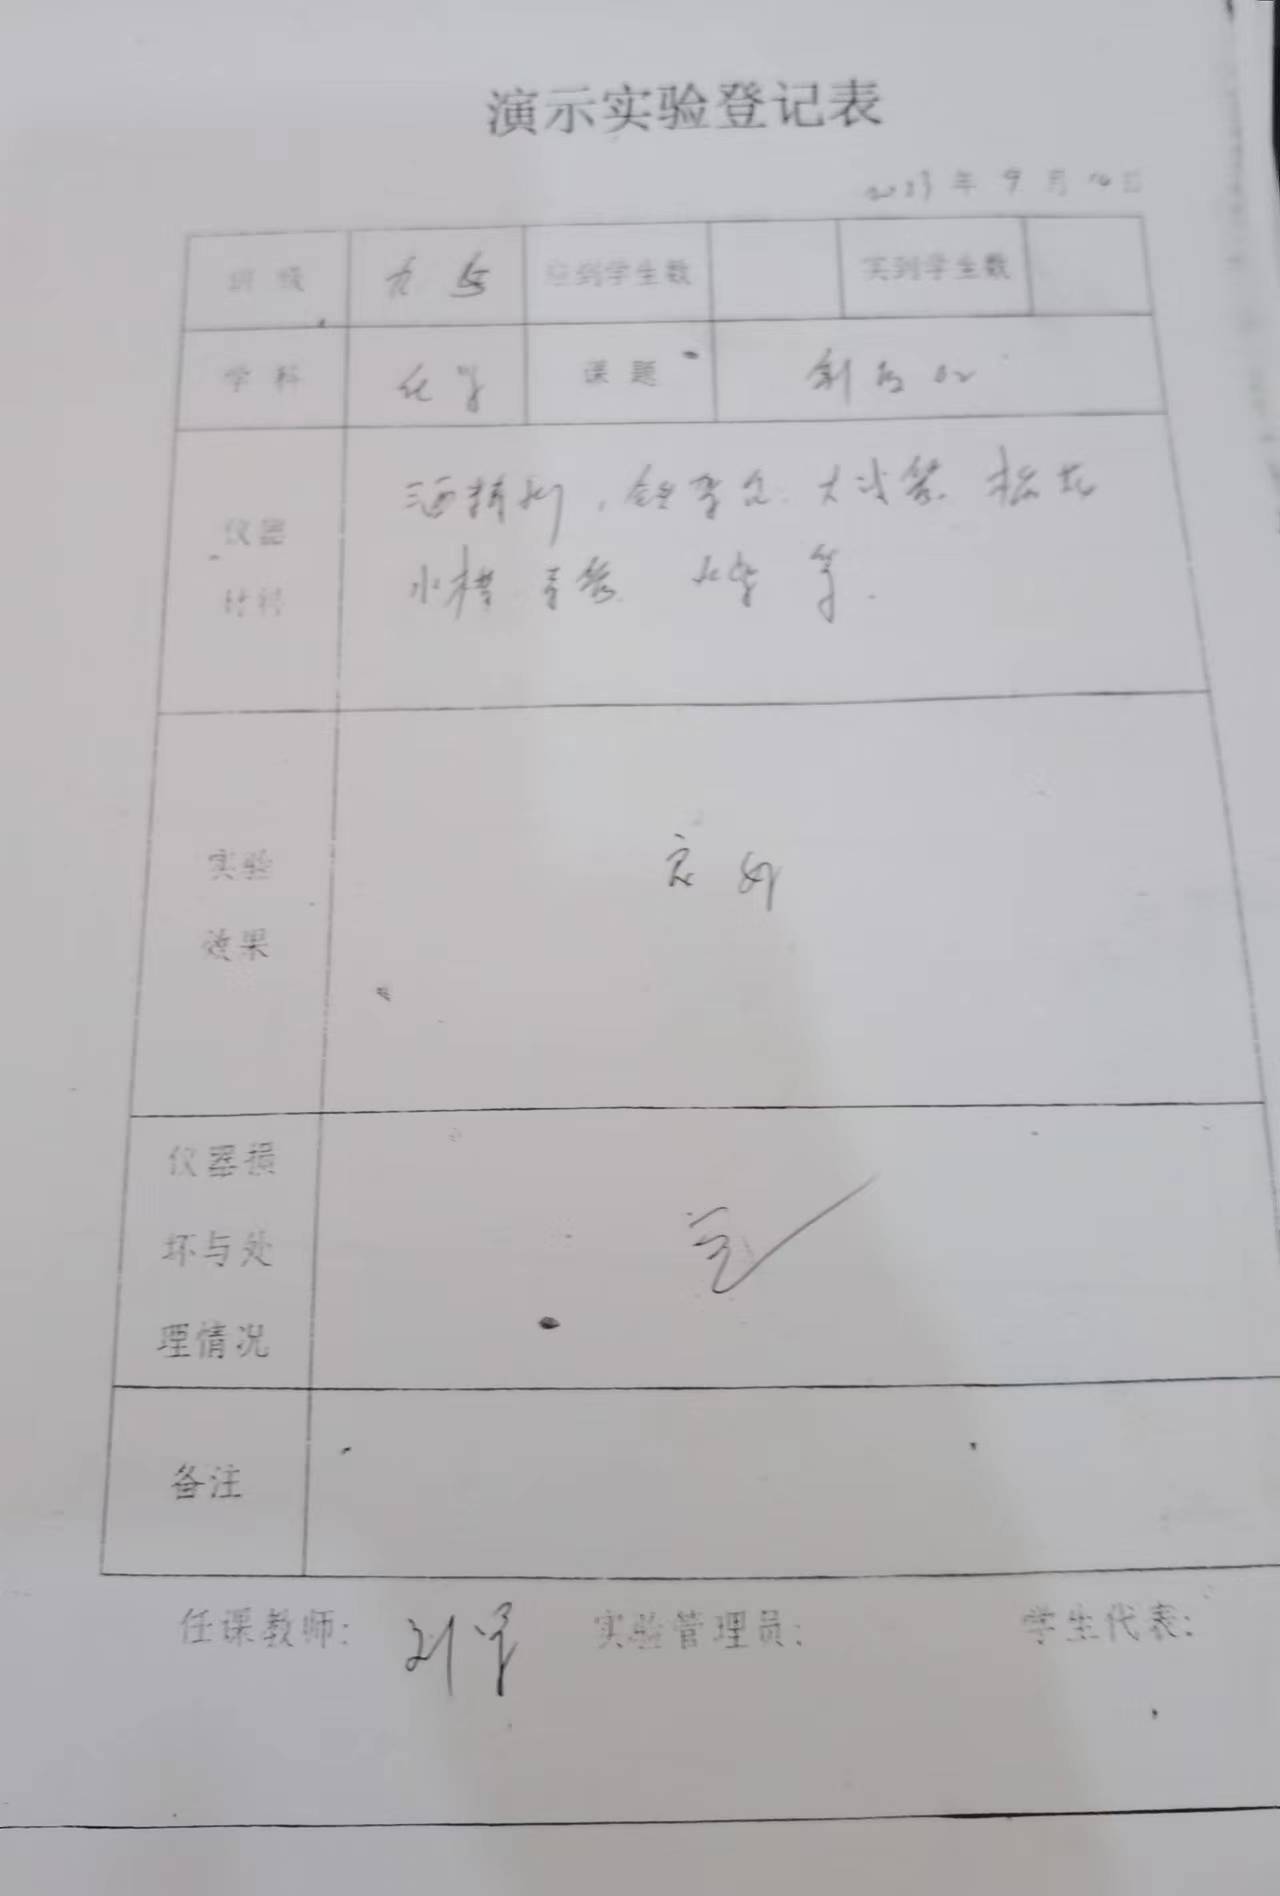 演示实验登记表
2023年9月 日
班级 九 应到学生数 实到学生数
学科 化学 课题 制取O2
仪器材料 酒精灯、铁架台、大试管、棉花
水槽 导管 火柴 等.
实验效果 良好
仪器损坏与处理情况 无
备注
任课教师: 刘 实验管理员: 学生代表: